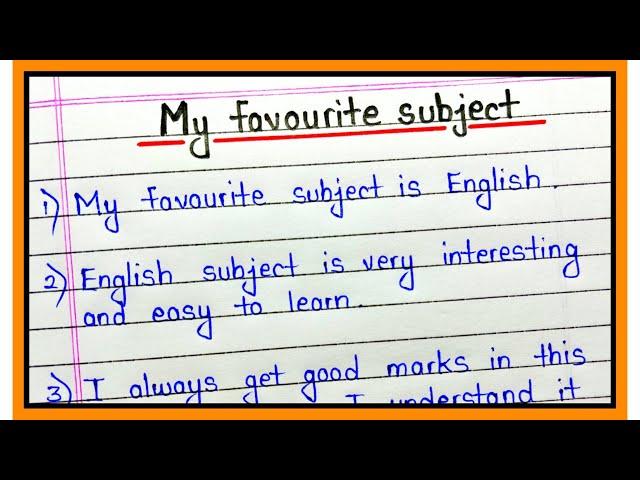 My favourite subject
1) My favourite subject is English.
2) English subject is very interesting
and easy to learn.
3) I always get good marks in this
I understand it